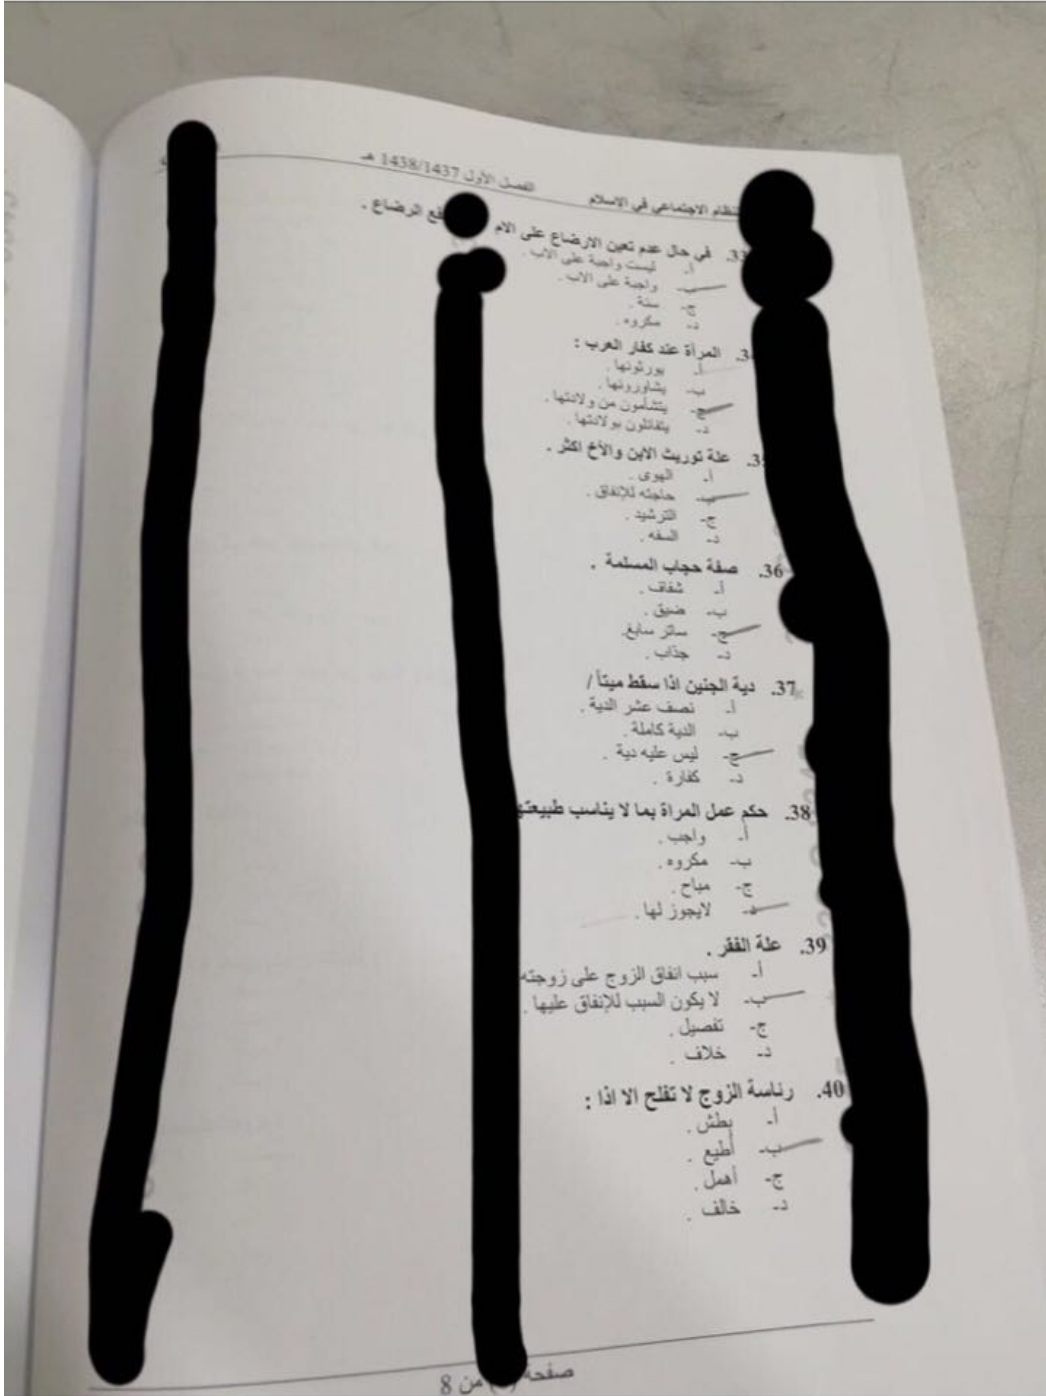 النظام الاجتماعي في الاسلام الفصل الأول 1438/1437 هـ
33. في حال عدم تعين الارضاع على الام الرضاع .
أ- ليست واجبة على الاب .
ب- واجبة على الاب .
ج- سنة .
د- مكروه .
المرأة عند كفار العرب :
أ- يورثونها .
ب- يشاورونها .
ج- يتشأمون من ولادتها .
د- يتفائلون بولادتها .
علة توريث الابن والأخ اكثر .
أ- الهوى .
ب- حاجته للإنفاق .
ج- الترشيد .
د- السفه .
36. صفة حجاب المسلمة .
أ- شفاف .
ب- ضيق .
ج- ساتر سابغ.
د- جذاب .
37. دية الجنين اذا سقط ميتأ /
أ- نصف عشر الدية .
ب- الدية كاملة .
ج- ليس عليه دية .
د- كفارة .
38. حكم عمل المراة بما لا يناسب طبيعتها
أ- واجب .
ب- مكروه .
ج- مباح .
د- لايجوز لها .
39. علة الفقر .
أ- سبب انفاق الزوج على زوجته
ب- لا يكون السبب للإنفاق عليها .
ج- تفصيل .
د- خلاف .
40. رئاسة الزوج لا تفلح الا اذا :
أ- بطش .
ب- أطيع .
ج- أهمل .
د- خالف .
صفحة من 8